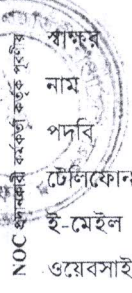 NOC প্রদানকারী কর্মকর্তা কর্তৃক পূরণীয়
স্বাক্ষর
নাম
পদবি
টেলিফোন
ই-মেইল
ওয়েবসাই